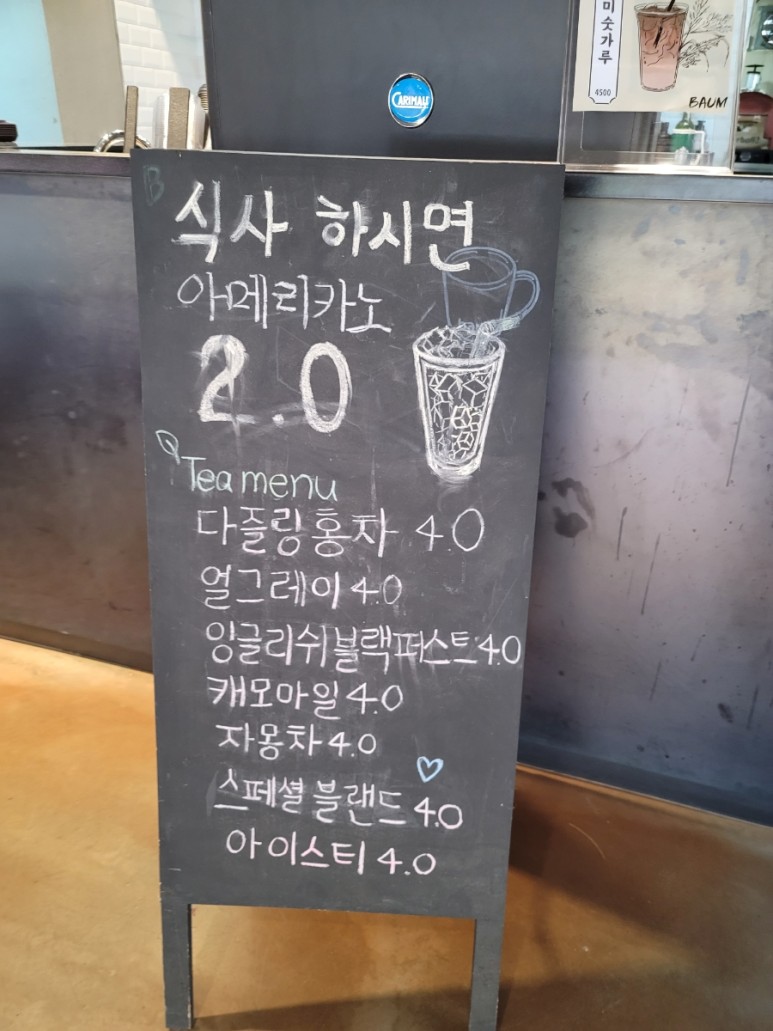 미숫가루
4500
BAUM
CARIMALI
식사 하시면
아메리카노
2.0
Tea menu
다즐링홍차 4.0
얼그레이 4.0
잉글리쉬블랙퍼스트 4.0
캐모마일 4.0
자몽차 4.0
스페셜블랜드 4.0
아이스티 4.0